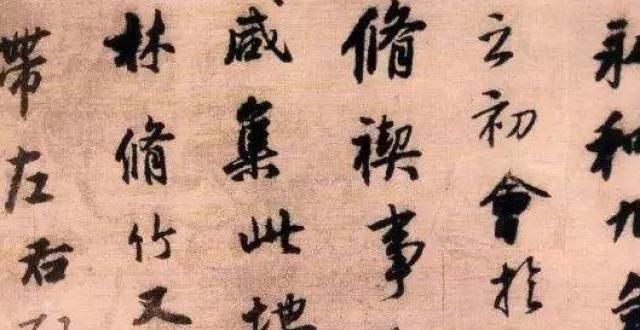 永和九年
之初會於
脩禊事
咸集此地
林脩竹又
帶左右